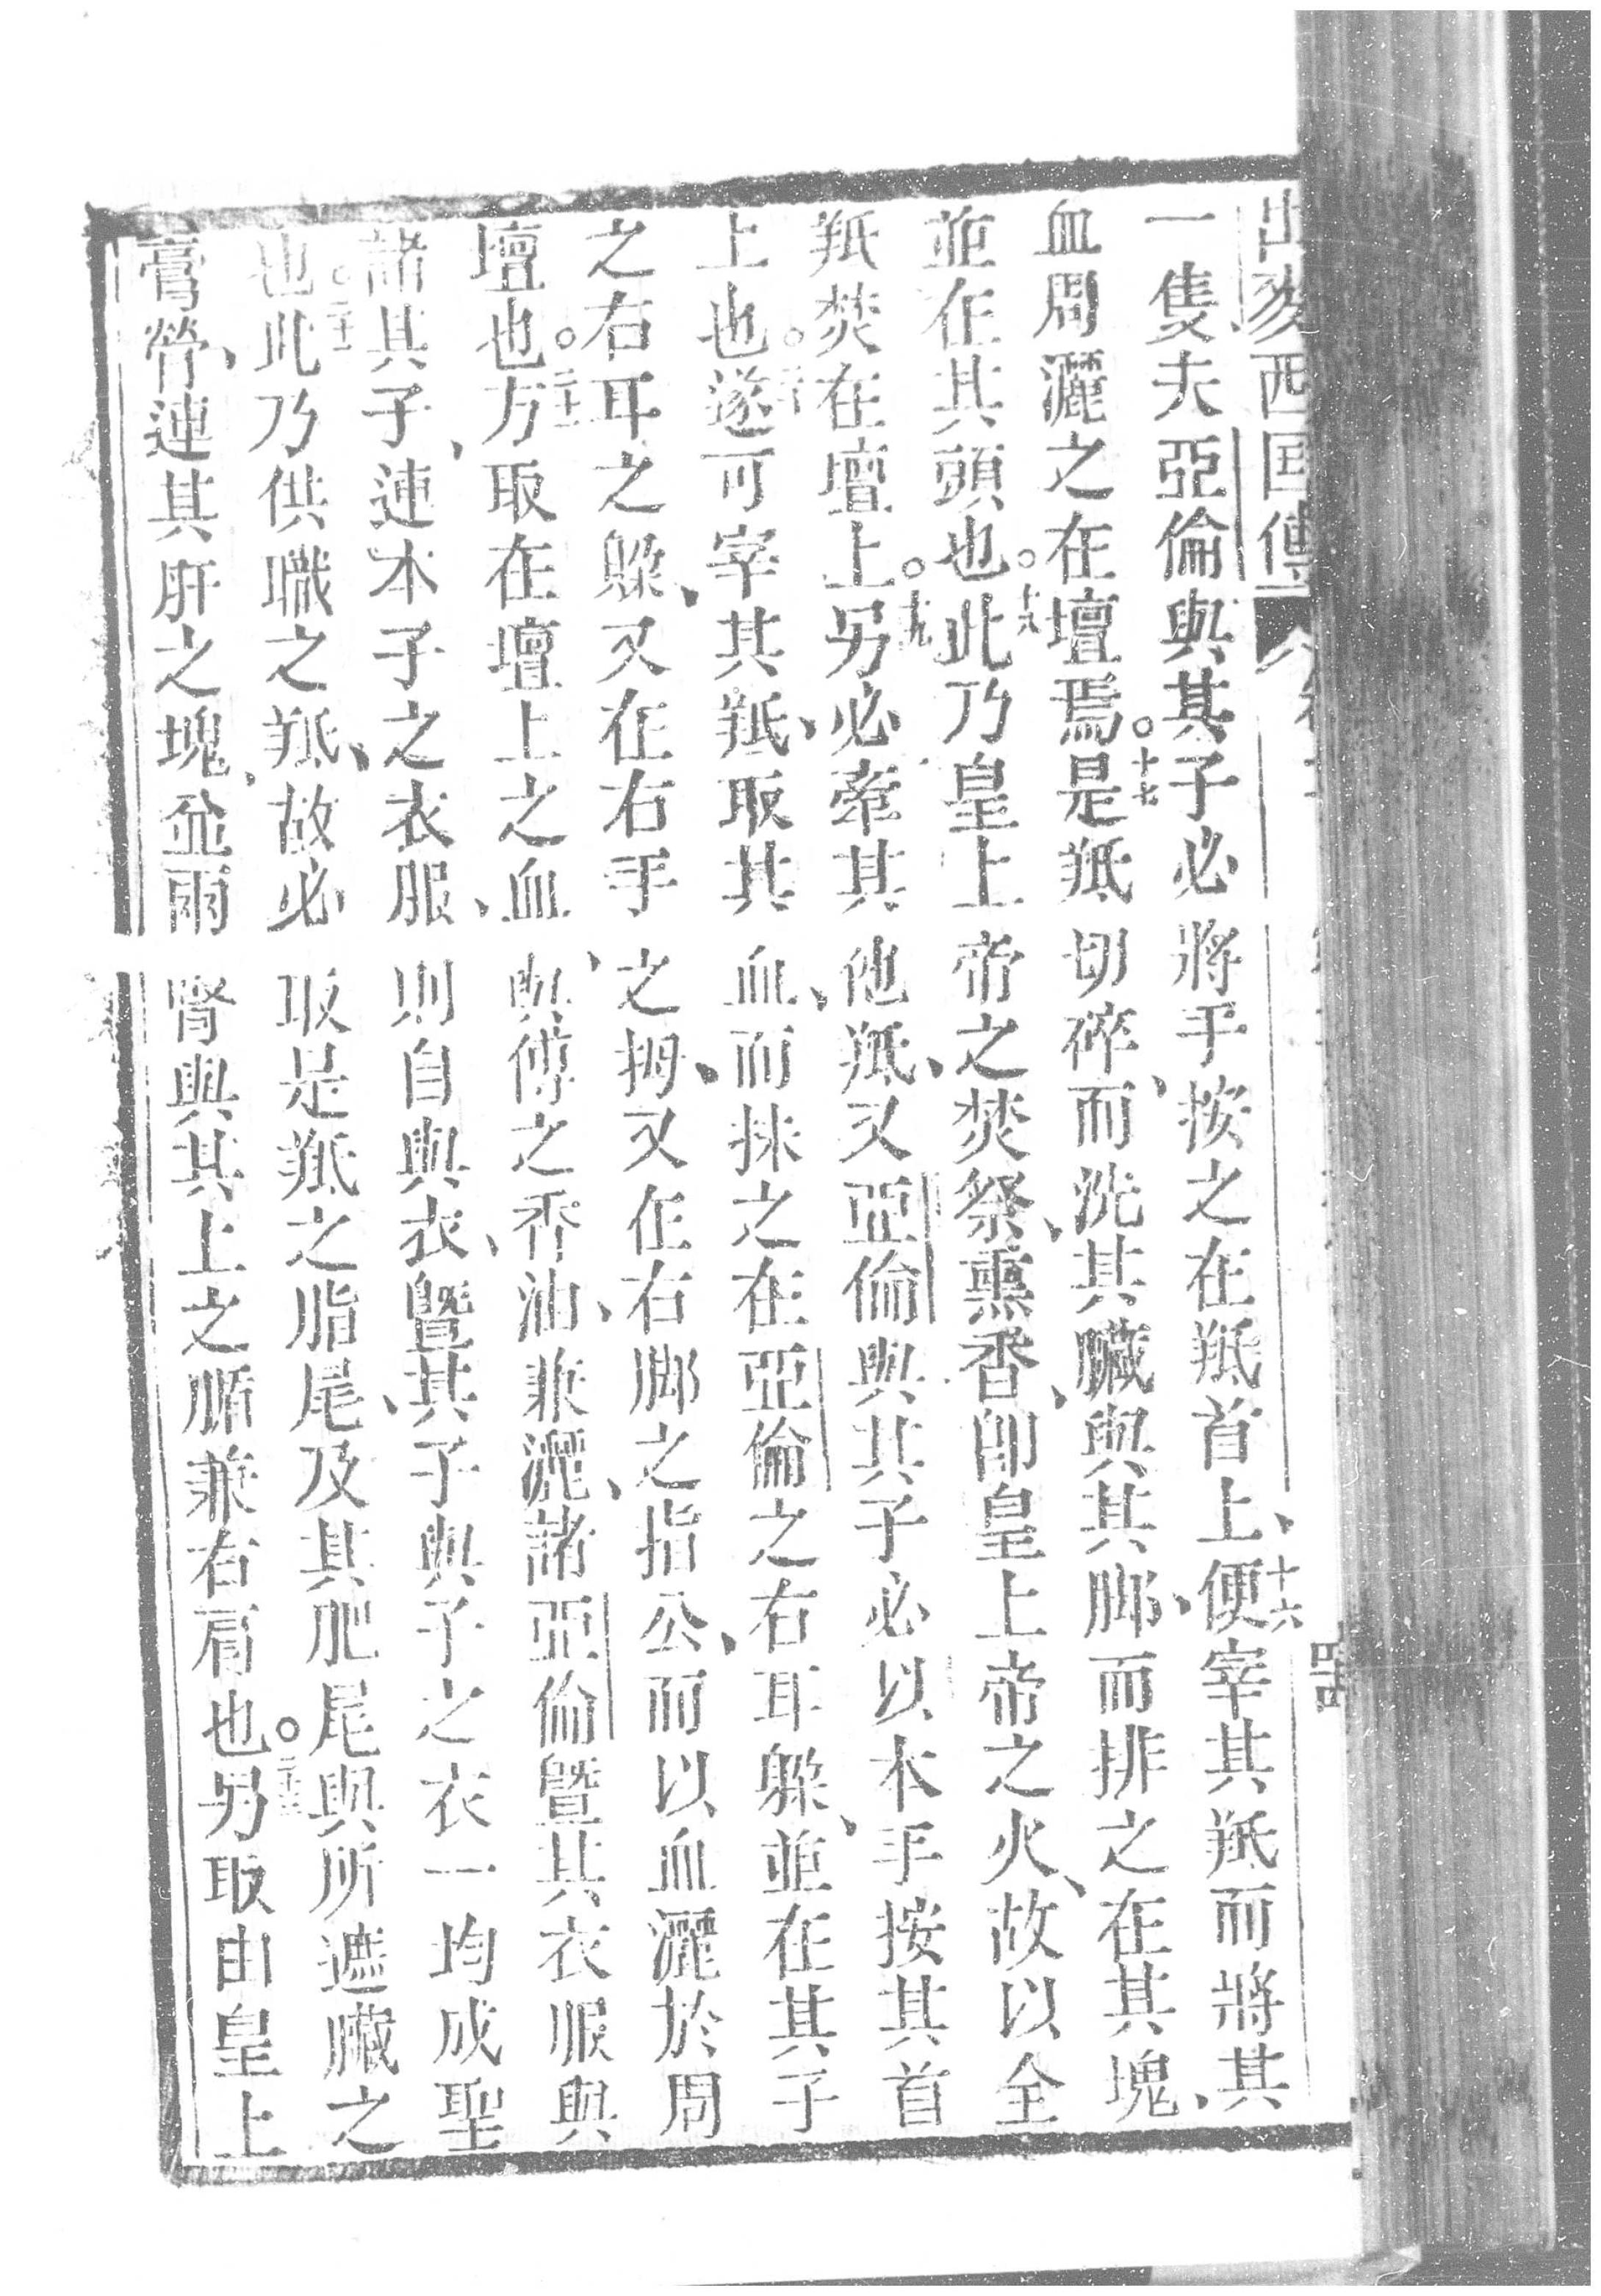 出麥西国傳
一隻夫亞倫與其子必將手按之在羝首上、十六便宰其羝而將其
血周灑之在壇焉。十七是羝切碎、而洗其臟與其脚、而排之在其塊、
並在其頭也。十八此乃皇上帝之焚祭、熏香、卽皇上帝之火、故以全
羝焚在壇上。十九另必牽其他羝、又亞倫與其子必以本手按其首
上也。二十遂可宰其羝、取其血、而抹之在亞倫之右耳躲、並在其子
之右耳之躲、又在右手之拇、又在右脚之指公、而以血灑於周
壇也。二十一方取在壇上之血、與傅之香油、兼灑、諸亞倫暨其衣服與
諸其子、連本子之衣服、則自與衣、暨其子與子之衣一均成聖
也。二十二此乃供職之羝、故必取是羝之脂尾、及其肥尾與所遮臟之
膏膋、連其肝之塊、並兩腎與其上之腯兼右肩也。二十三另取由皇上